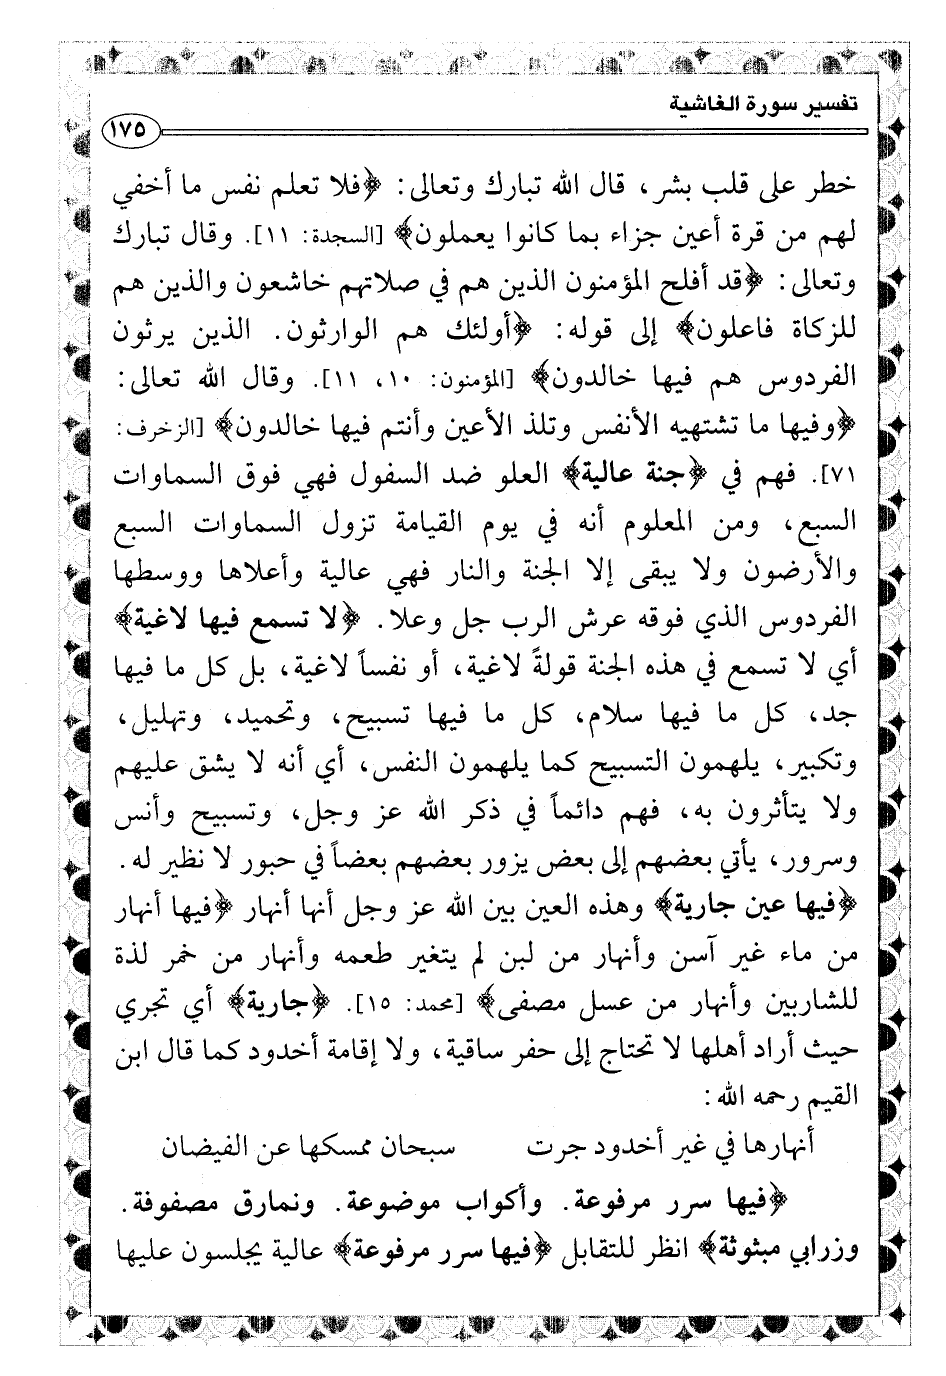 تفسير سورة الغاشية
١٧٥
خطر على قلب بشر، قال الله تبارك وتعالى: ﴿فلا تعلم نفس ما أخفي
لهم من قرة أعين جزاء بما كانوا يعملون﴾ [السجدة: ١١]. وقال تبارك
وتعالى: ﴿قد أفلح المؤمنون الذين هم في صلاتهم خاشعون والذين هم
للزكاة فاعلون﴾ إلى قوله: ﴿أولئك هم الوارثون. الذين يرثون
الفردوس هم فيها خالدون﴾ [المؤمنون: ١٠، ١١]. وقال الله تعالى:
﴿وفيها ما تشتهيه الأنفس وتلذ الأعين وأنتم فيها خالدون﴾ [الزخرف:
٧١]. فهم في ﴿جنة عالية﴾ العلو ضد السفول فهي فوق السماوات
السبع، ومن المعلوم أنه في يوم القيامة تزول السماوات السبع
والأرضون ولا يبقى إلا الجنة والنار فهي عالية وأعلاها ووسطها
الفردوس الذي فوقه عرش الرب جل وعلا. ﴿لا تسمع فيها لاغية﴾
أي لا تسمع في هذه الجنة قولةً لاغية، أو نفساً لاغية، بل كل ما فيها
جد، كل ما فيها سلام، كل ما فيها تسبيح، وتحميد، وتهليل،
وتكبير، يلهمون التسبيح كما يلهمون النفس، أي أنه لا يشق عليهم
ولا يتأثرون به، فهم دائماً في ذكر الله عز وجل، وتسبيح وأنس
وسرور، يأتي بعضهم إلى بعض يزور بعضهم بعضاً في حبور لا نظير له.
﴿فيها عين جارية﴾ وهذه العين بين الله عز وجل أنها أنهار ﴿فيها أنهار
من ماء غير آسن وأنهار من لبن لم يتغير طعمه وأنهار من خمر لذة
للشاربين وأنهار من عسل مصفى﴾ [محمد: ١٥]. ﴿جارية﴾ أي تجري
حيث أراد أهلها لا تحتاج إلى حفر ساقية، ولا إقامة أخدود كما قال ابن
القيم رحمه الله:
أنهارها في غير أخدود جرت سبحان ممسكها عن الفيضان
﴿فيها سرر مرفوعة. وأكواب موضوعة. ونمارق مصفوفة.
وزرابي مبثوثة﴾ انظر للتقابل ﴿فيها سرر مرفوعة﴾ عالية يجلسون عليها